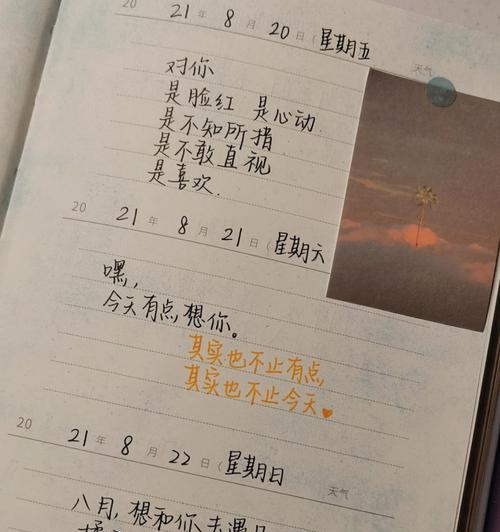 20 21 年 8 月 20 日 (星期五 天气
对你
是脸红 是心动.
是不知所措
是不敢直视
是喜欢.
20 21 年 8 月 21 日 (星期六
嘿,
今天有点想你。
其实也不止有点,
其实也不止今天
20 21 年 8 月 22 日 (星期日 天气
八月,想和你去